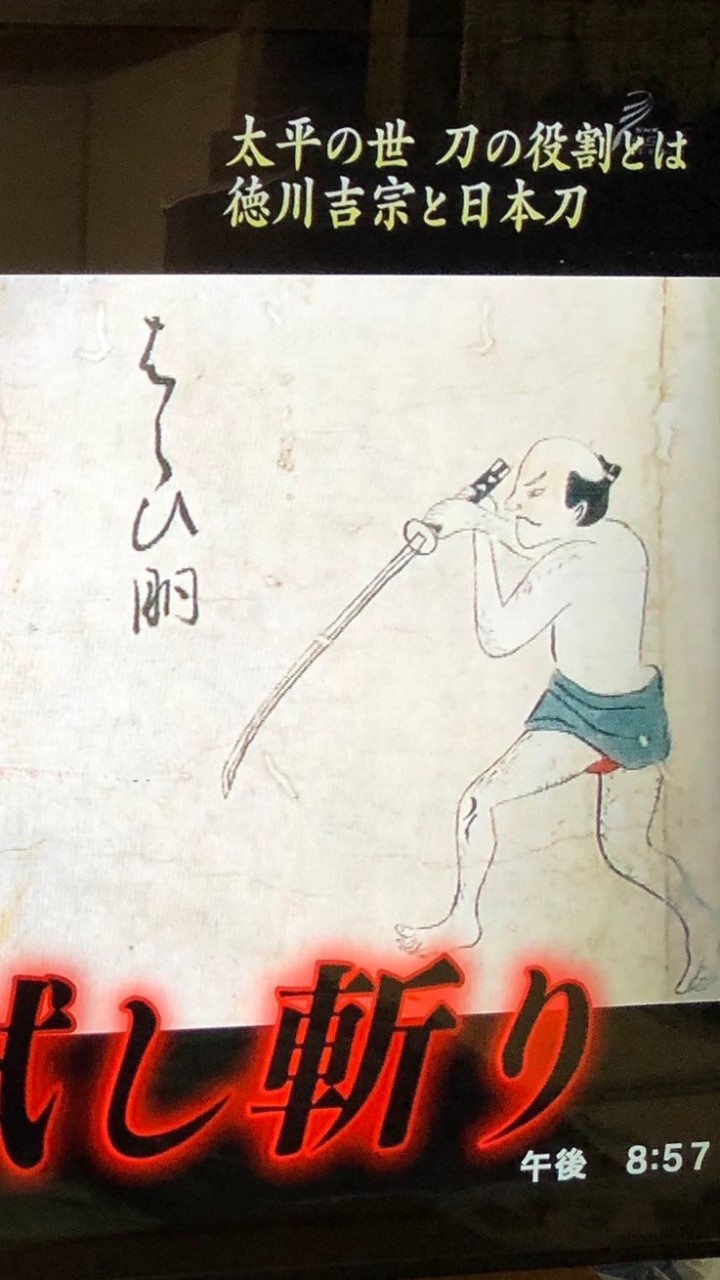 太平の世 刀の役割とは
徳川吉宗と日本刀
試し斬り
午後 8:57